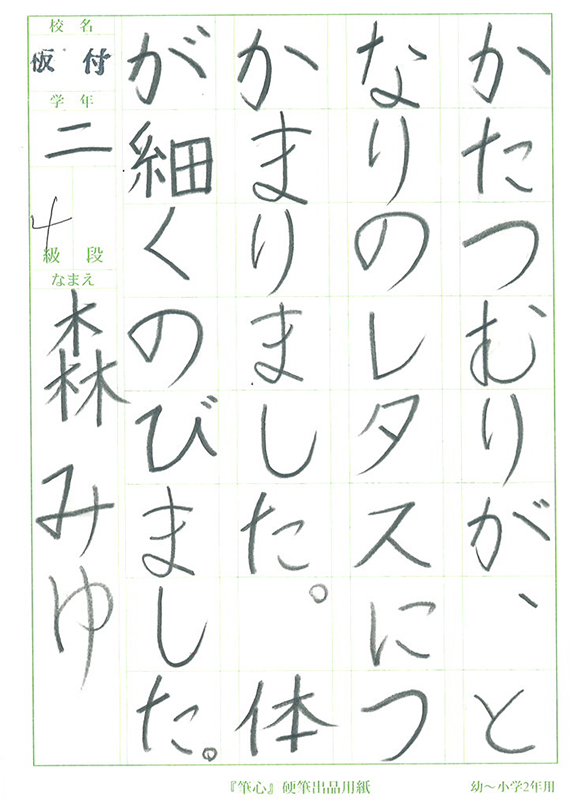 かたつむりが、と
なりのレタスにつ
かまりました。体
が細くのびました。
校名
板付
学年
二
4
級 段
なまえ
森みゆ
『筆心』硬筆出品用紙
幼〜小学2年用